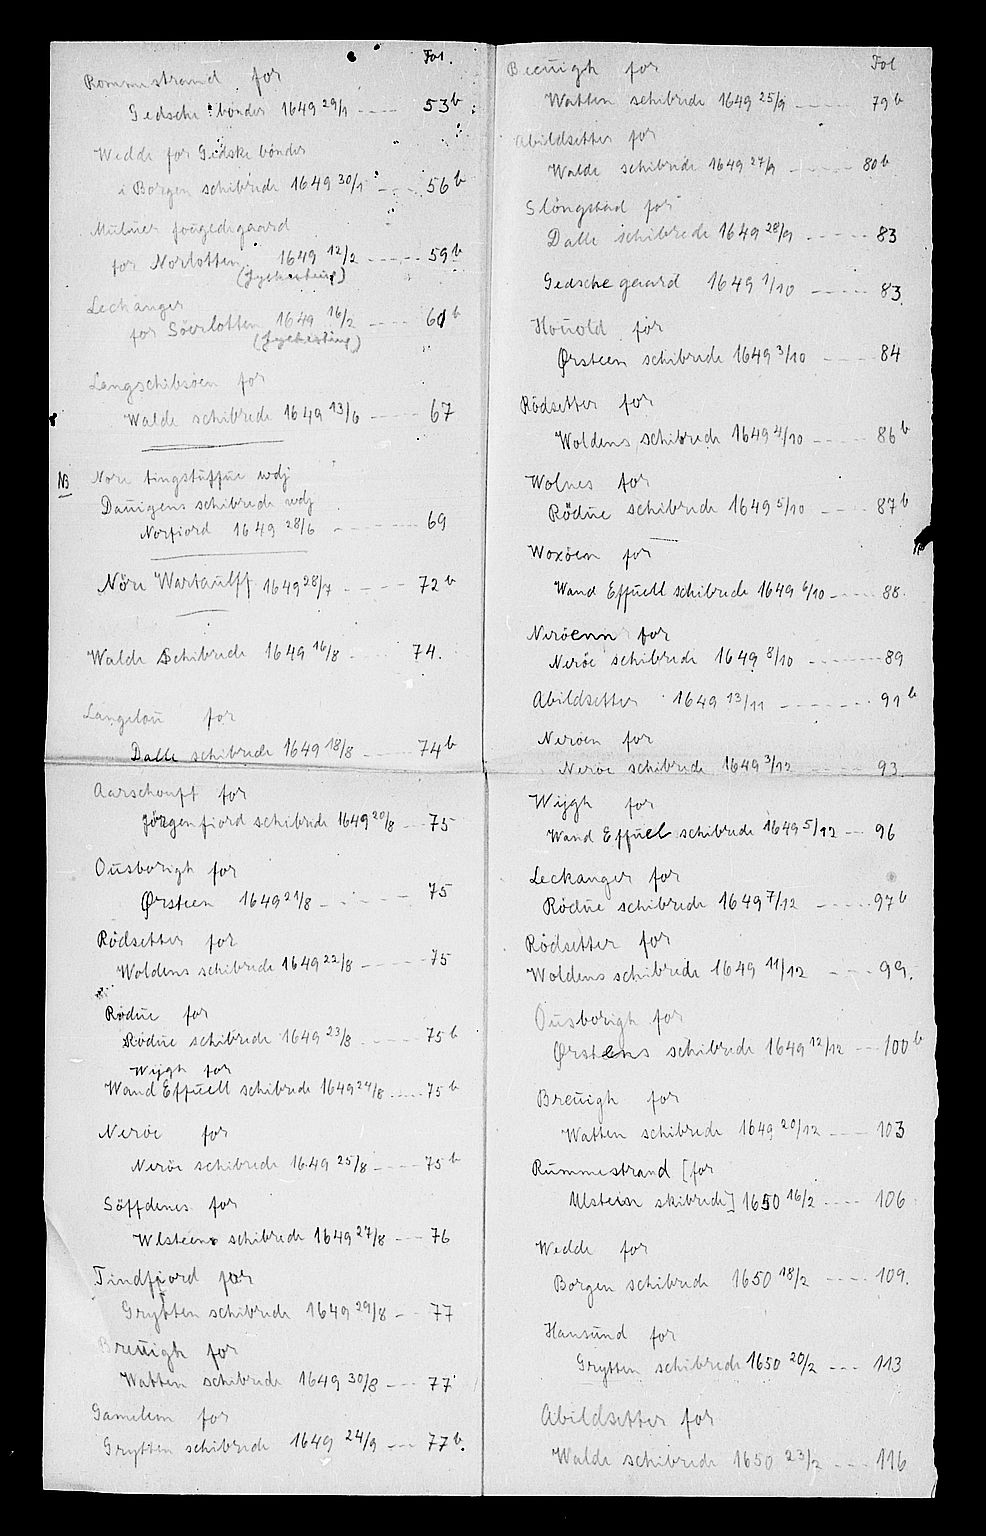 Fol.
Rommestrand for
Gedsche bönder 1649 29/1 ---- 53b
Wedde for Gidske bönder
i Borgen schibrede 1649 30/1 ---- 56b
Mulnes fougedgaard
for Norlotten 1649 12/2 ---- 59b
Leckanger
for Söerlotten 1649 16/2 ---- 60b
Langschibsöen for
Walde schibrede 1649 13/6 ---- 67
NB Nore tingstuffue wdj
Dauigens schibrede wdj
Norfiord 1649 28/6 ---- 69
Nöre Wartaulff 1649 28/7 ---- 72b
Walde Schibrede 1649 16/8 ---- 74.
Langelou for
Dalle schibrede 1649 18/8 ---- 74b
Aarschouft for
Jörgenfiord schibrede 1649 20/8 --- 75
Ousborigh for
Ørsteen 1649 21/8 ---- 75
Rödsetter for
Woldens schibrede 1649 22/8 ---- 75
Rödue for
Rödue schibrede 1649 23/8 ---- 75b
Wijgh for
Wand Effuell schibrede 1649 24/8 ---- 75b
Neröe for
Neröe schibrede 1649 25/8 ---- 75b
Söffdenes for
Wlsteens schibrede 1649 27/8 --- 76
Tindfjord for
Grytten schibrede 1649 29/8 -- 77
Breuigh for
Watten schibrede 1649 30/8 --- 77
Gamelem for
Grytten schibrede 1649 24/9 --- 77b.
Fol
Breuigh for
Watten schibrede 1649 25/9 ---- 79b
Abildsetter for
Walde schibrede 1649 27/9 ---- 80b
Slöngstad for
Dalle schibrede 1649 28/9 ---- 83
Gedsche gaard 1649 1/10 ---- 83
Houold for
Ørsteen schibrede 1649 3/10 ---- 84
Rödsetter for
Woldens schibrede 1649 4/10 ---- 86b
Wolnes for
Rödue schibrede 1649 5/10 ---- 87b
Woxöen for
Wand Effuell schibrede 1649 6/10 ---- 88
Neröenn for
Neröe schibrede 1649 8/10 ---- 89
Abildsetter 1649 13/11 ---- 91b
Neröen for
Neröe schibrede 1649 3/12 ---- 93
Wijgh for
Wand Effuel schibrede 1649 5/12 -- 96
Leckanger for
Rödue schibrede 1649 7/12 ---- 97b
Rödsetter for
Woldens schibrede 1649 11/12 --- 99.
Ousborigh for
Ørstens schibrede 1649 12/12 --- 100b
Breuigh for
Watten schibrede 1649 20/12 ---- 103
Rummestrand [for
Ulstein skibrede] 1650 16/2 ---- 106
Wedde for
Borgen schibrede 1650 18/2 ---- 109.
Hansund for
Grytten schibrede 1650 20/2 --- 113
Abildsetter for
Walde schibrede 1650 23/2 --- 116